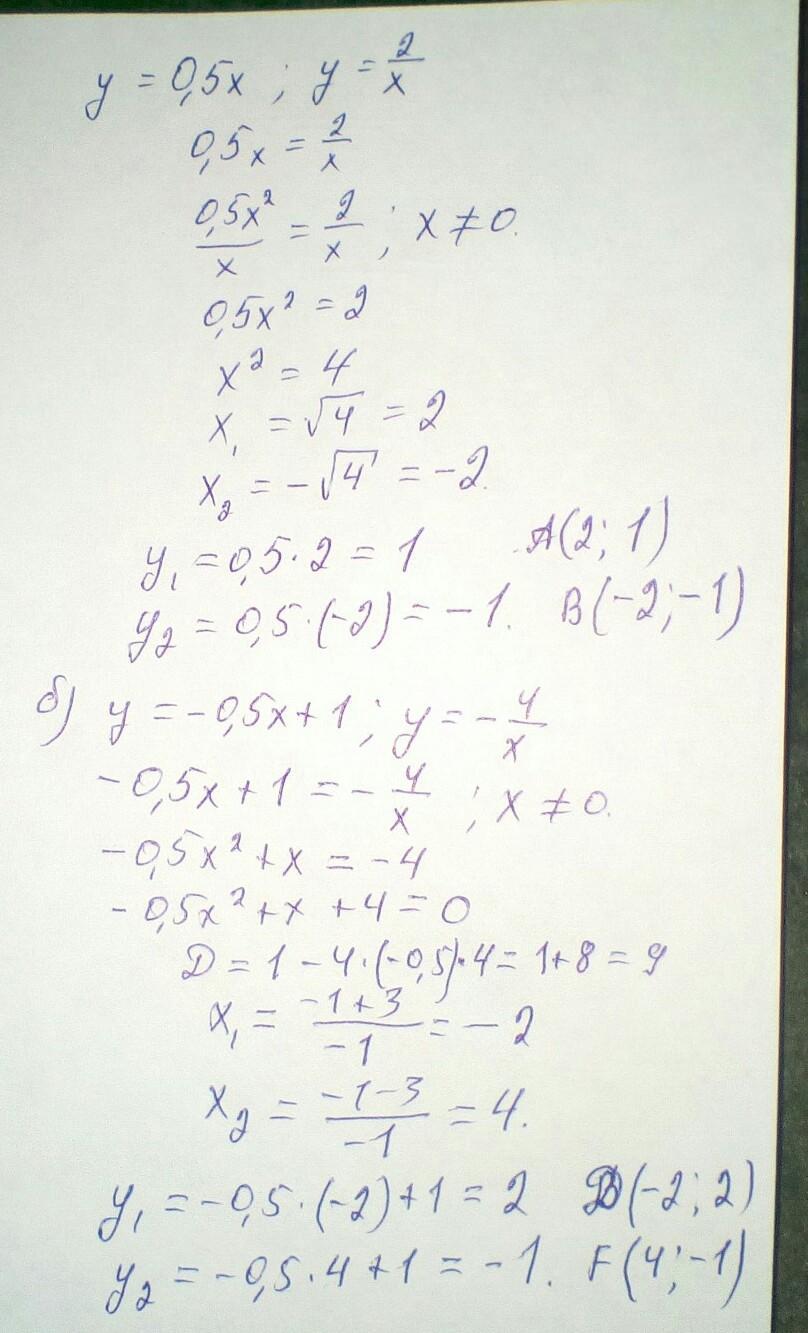 y = 0,5x ; y = 2/x
0,5x = 2/x
0,5x²/x = 2/x ; x ≠ 0.
0,5x² = 2
x² = 4
x₁ = √4 = 2
x₂ = -√4 = -2.
y₁ = 0,5·2 = 1 A(2; 1)
y₂ = 0,5·(-2) = -1. B(-2;-1)
б) y = -0,5x+1 ; y = -4/x
-0,5x+1 = -4/x ; x ≠ 0.
-0,5x²+x = -4
-0,5x²+x+4=0
D = 1-4·(-0,5)·4 = 1+8 = 9
x₁ = (-1+3)/(-1) = -2
x₂ = (-1-3)/(-1) = 4.
y₁ = -0,5·(-2)+1 = 2 D(-2; 2)
y₂ = -0,5·4+1 = -1. F(4;-1)